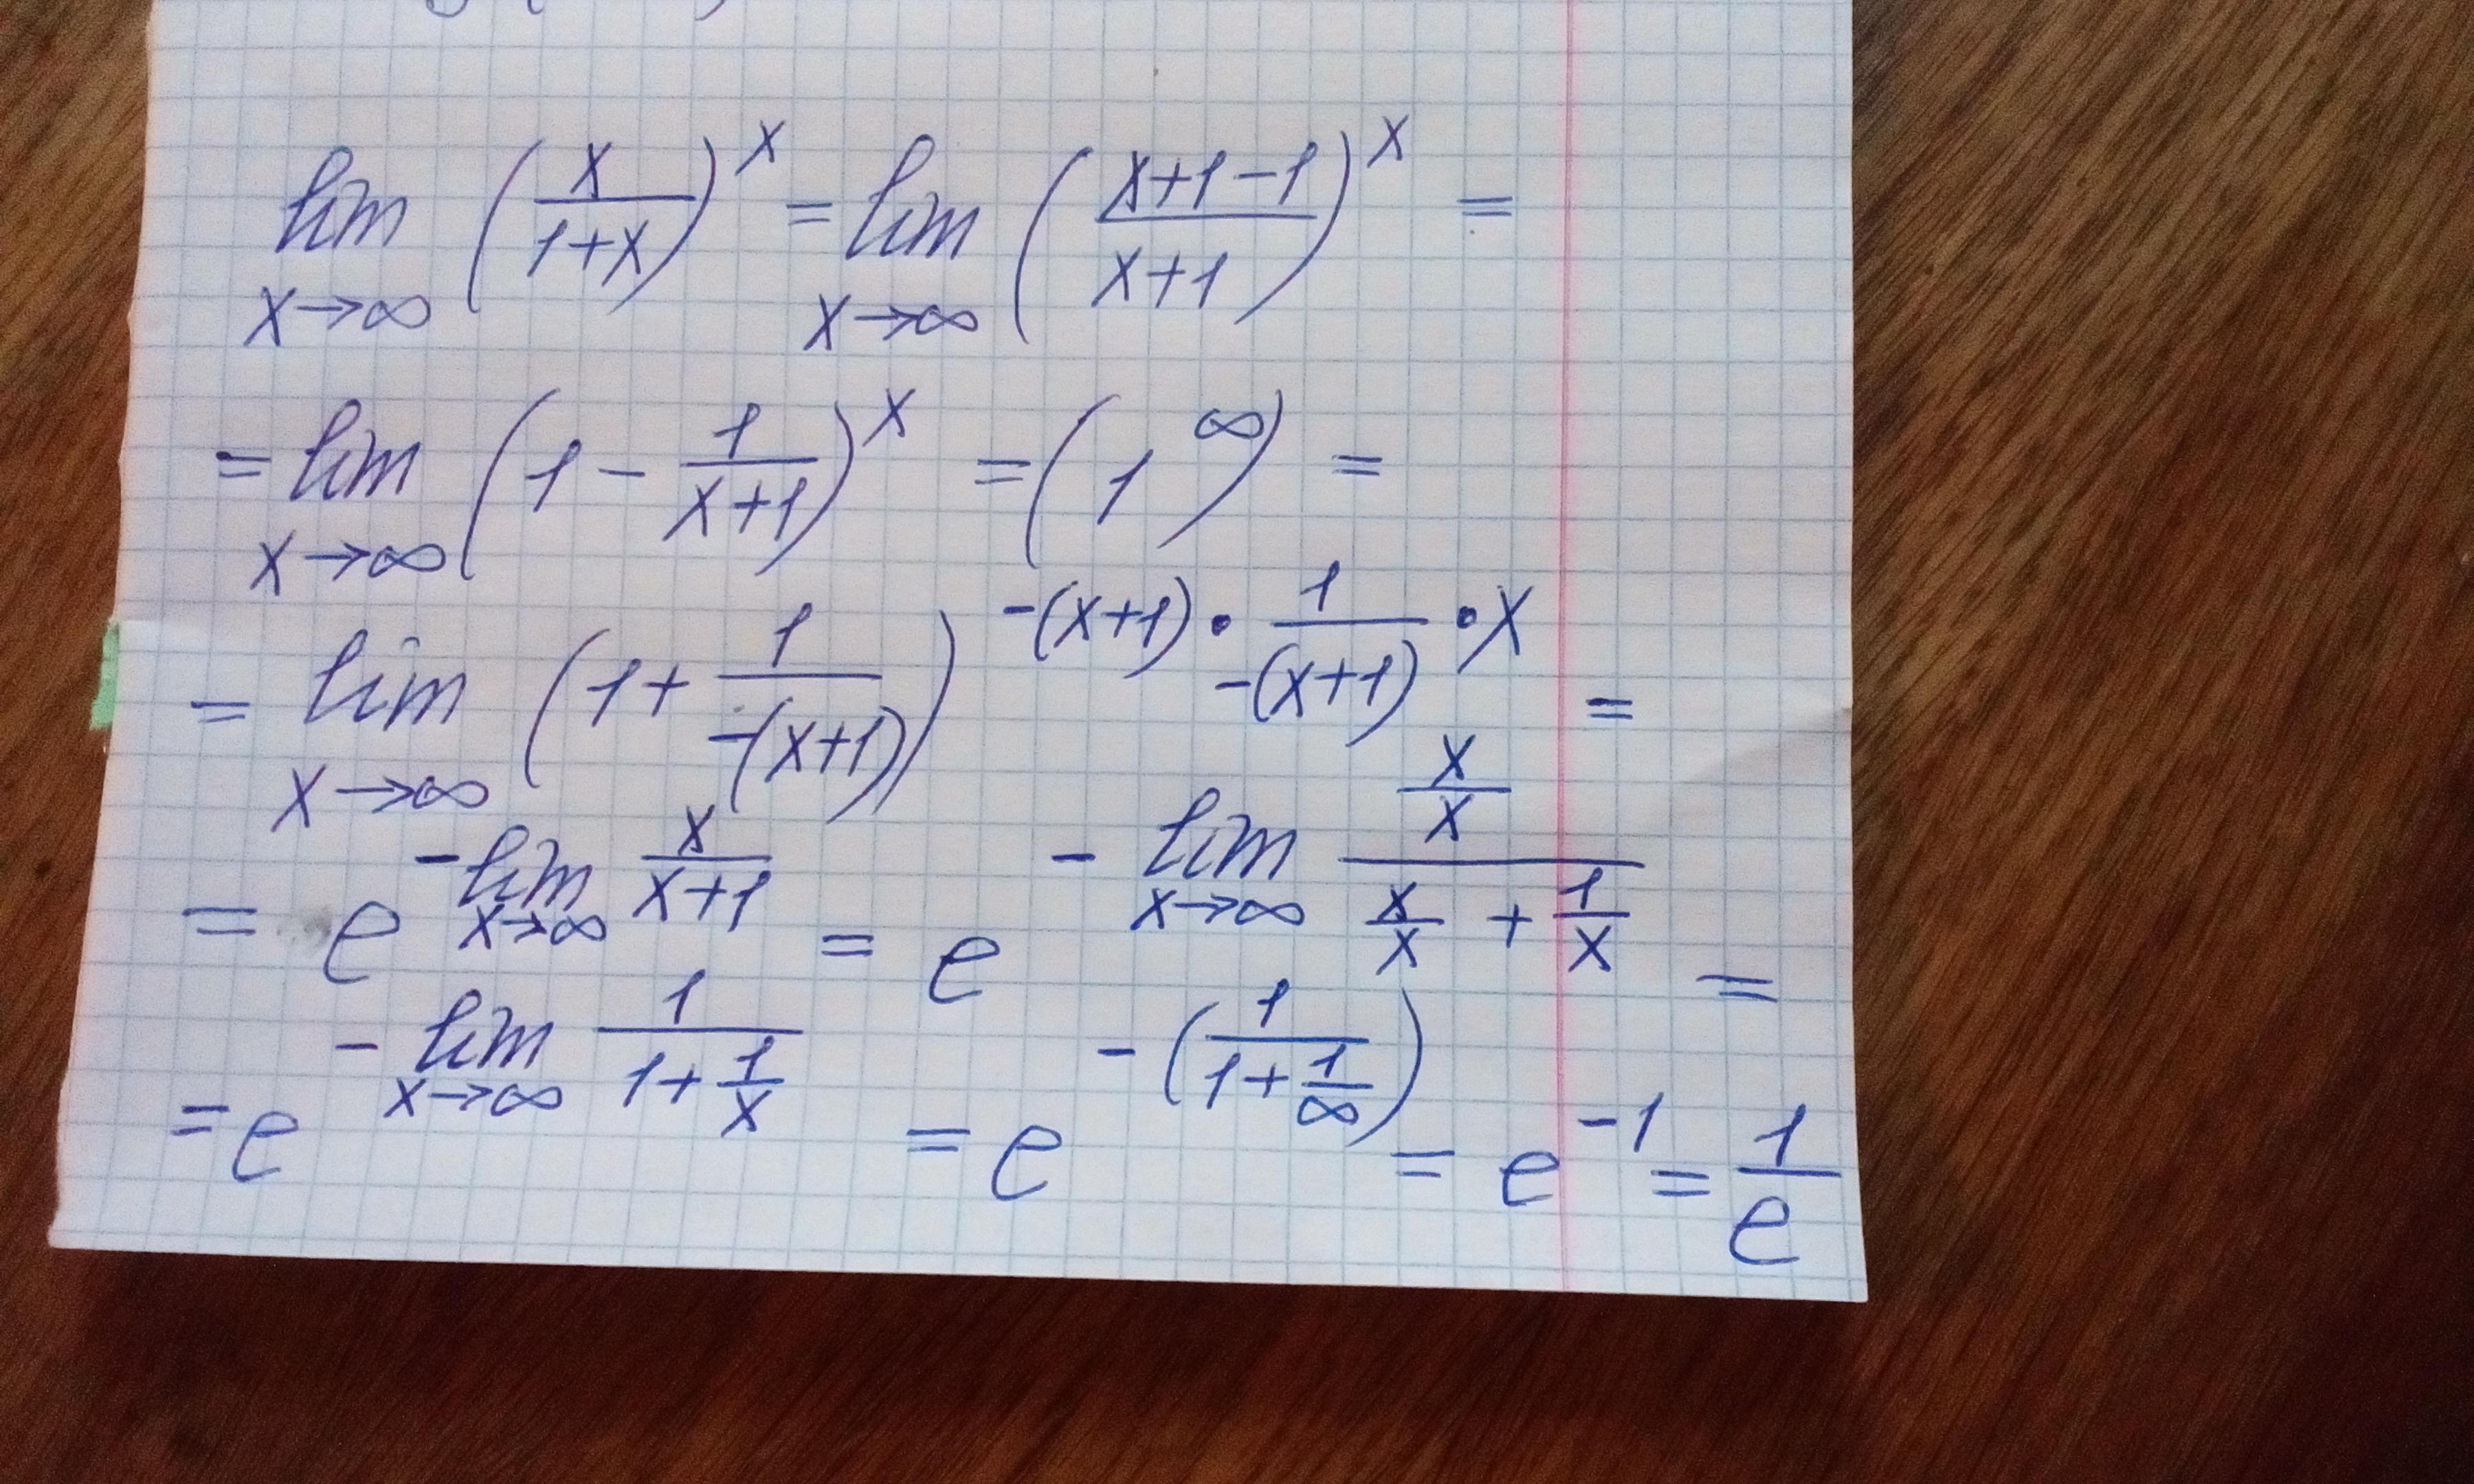 lim x→∞ (x/(1+x))^x = lim x→∞ ((x+1−1)/(x+1))^x =
= lim x→∞ (1 − 1/(x+1))^x = (1^∞) =
= lim x→∞ (1 + 1/(−(x+1)))^(−(x+1) · 1/(−(x+1)) · x) =
= e^(−lim x→∞ x/(x+1)) = e^(−lim x→∞ (x/x)/(x/x + 1/x)) =
= e^(−lim x→∞ 1/(1 + 1/x)) = e^(−(1/(1 + 1/∞))) = e^(−1) = 1/e